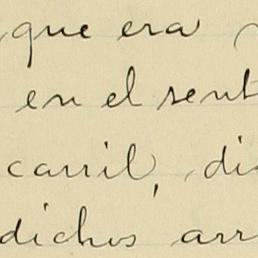 que era
en el sent
carril, di
dichos arr